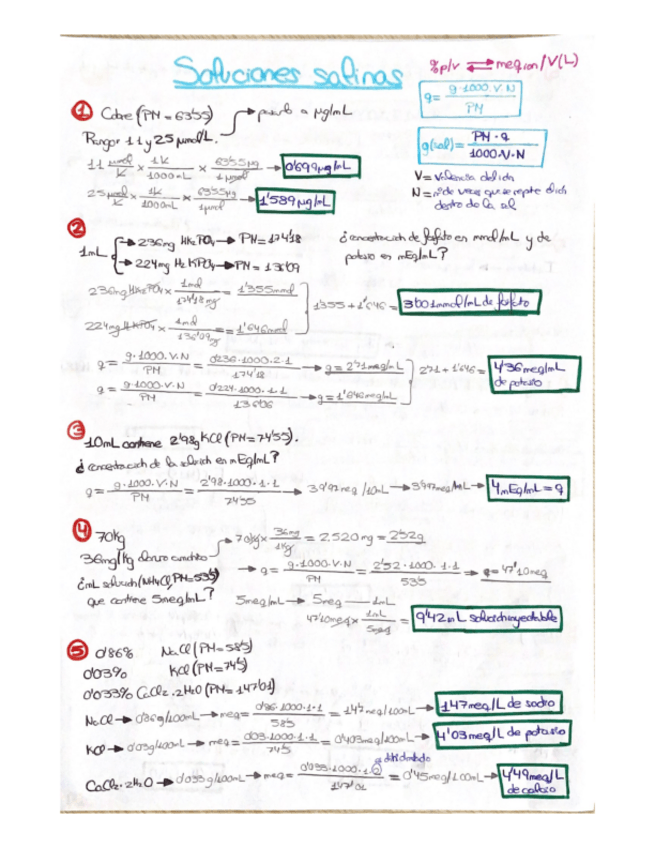 Soluciones salinas
%p/v ⇄ meq ion/V(L)
q = g·1000·V·N / PM
g(sal) = PM·q / 1000·V·N
V = Valencia del ión
N = nº de veces que se repite el ión dentro de la sal
① Cobre (PM = 63'55) → pasarlo a µg/mL
Rango: 11 y 25 µmol/L.
11 µmol/L × 1L/1000mL × 63'55µg/1µmol → 0'699µg/mL
25 µmol/L × 1L/1000mL × 63'55µg/1µmol → 1'589µg/mL
②
1mL → 236mg HK₂PO₄ → PM = 174'18
→ 224mg H₂KPO₄ → PM = 136'09
¿concentración de fosfato en mmol/mL y de potasio en mEq/mL?
236mg HK₂PO₄ × 1mol/174'18mg = 1'355mmol
224mg H₂KPO₄ × 1mol/136'09g = 1'646mmol
1'355 + 1'646 = 3'001mmol/mL de fosfato
q = g·1000·V·N / PM = 0'236·1000·2·1 / 174'18 → q = 2'71meq/mL
q = g·1000·V·N / PM = 0'224·1000·1·1 / 136'06 → q = 1'646meq/mL
2'71 + 1'646 = 4'36meq/mL de potasio
③
10mL contiene 2'98g KCl (PM = 74'55).
¿concentración de la solución en mEq/mL?
q = g·1000·V·N / PM = 2'98·1000·1·1 / 74'55 → 39'97meq/10mL → 3'997meq/mL → 4mEq/mL = q
④ 70kg
36mg/kg cloruro amónico
→ 70kg × 36mg/1kg = 2.520mg = 2'52g
¿mL solución (NH₄Cl, PM = 53'5) que contiene 5meq/mL?
→ q = g·1000·V·N / PM = 2'52·1000·1·1 / 53'5 → q = 47'10meq
5meq/mL → 5meq — 1mL
47'10meq × 1mL/5meq = 9'42mL solución inyectable
⑤ 0'86% NaCl (PM = 58'5)
0'03% KCl (PM = 74'5)
0'033% CaCl₂·2H₂O (PM = 147'01)
NaCl → 0'86g/100mL → meq = 0'86·1000·1·1 / 58'5 = 14'7meq/100mL → 147meq/L de sodio
KCl → 0'03g/100mL → meq = 0'03·1000·1·1 / 74'5 = 0'403meq/100mL → 4'03meq/L de potasio
CaCl₂·2H₂O → 0'033g/100mL → meq = 0'033·1000·1·2 / 147'01 = 0'45meq/100mL → 4'49meq/L de calcio